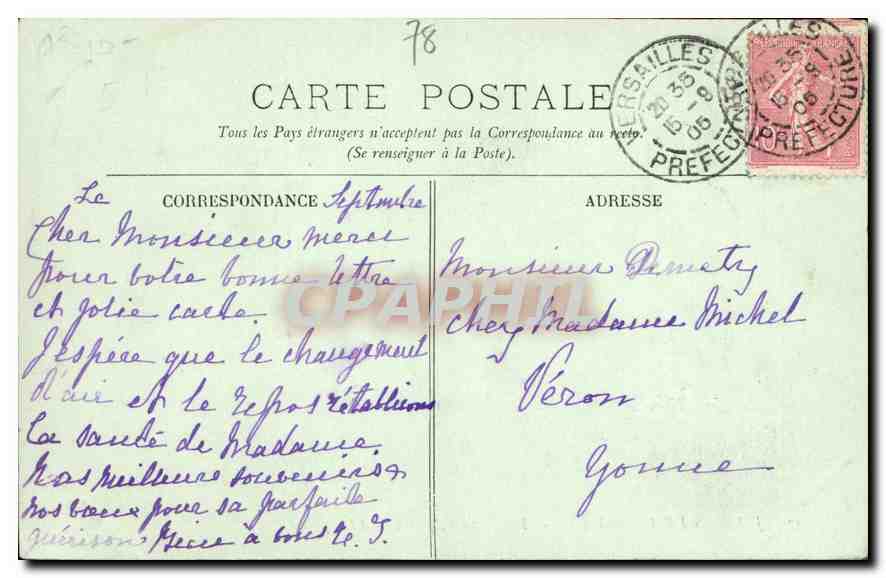 78
CARTE POSTALE
Tous les Pays étrangers n'acceptent pas la Correspondance au recto.
(Se renseigner à la Poste).
VERSAILLES
20 35
15 - 9
05
PREFECTURE
VERSAILLES
20 35
15 - 9
05
PREFECTURE
10
CORRESPONDANCE
ADRESSE
Le Septembre
Cher Monsieur merci
pour votre bonne lettre
et jolie carte.
J'espère que le changement
d'air et le repos rétablirons
la santé de Madame
Nos meilleure souvenirs &
nos vœux pour sa parfaite
guérison
à vous
Monsieur Dematry
chez Madame Michel
Véron
Yonne
CPAPHIL